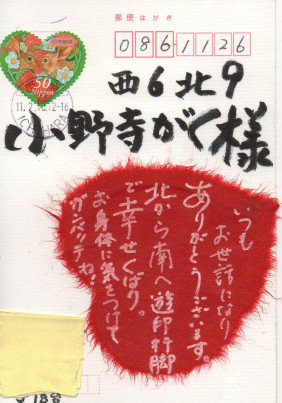 郵便はがき
50
NIPPON
11.2.18.12-18
0861126
西6北9
小野寺がく様
いつも
お世話になり
ありがとうございます。
北から南へ遊印行脚
で幸せくばり。
お身体に気をつけて
ガンバッテネ。